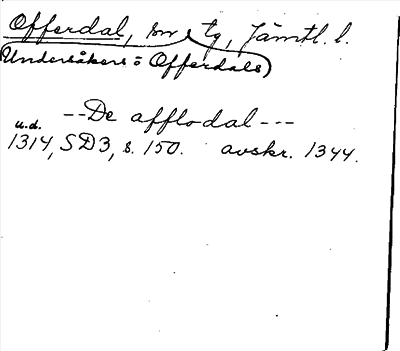 Offerdal, sn, tg, Jämtl. l.
(Undersåkers o Offerdals)
--De afflodal---
u.d.
1314, SD3, s. 150. avskr. 1344.